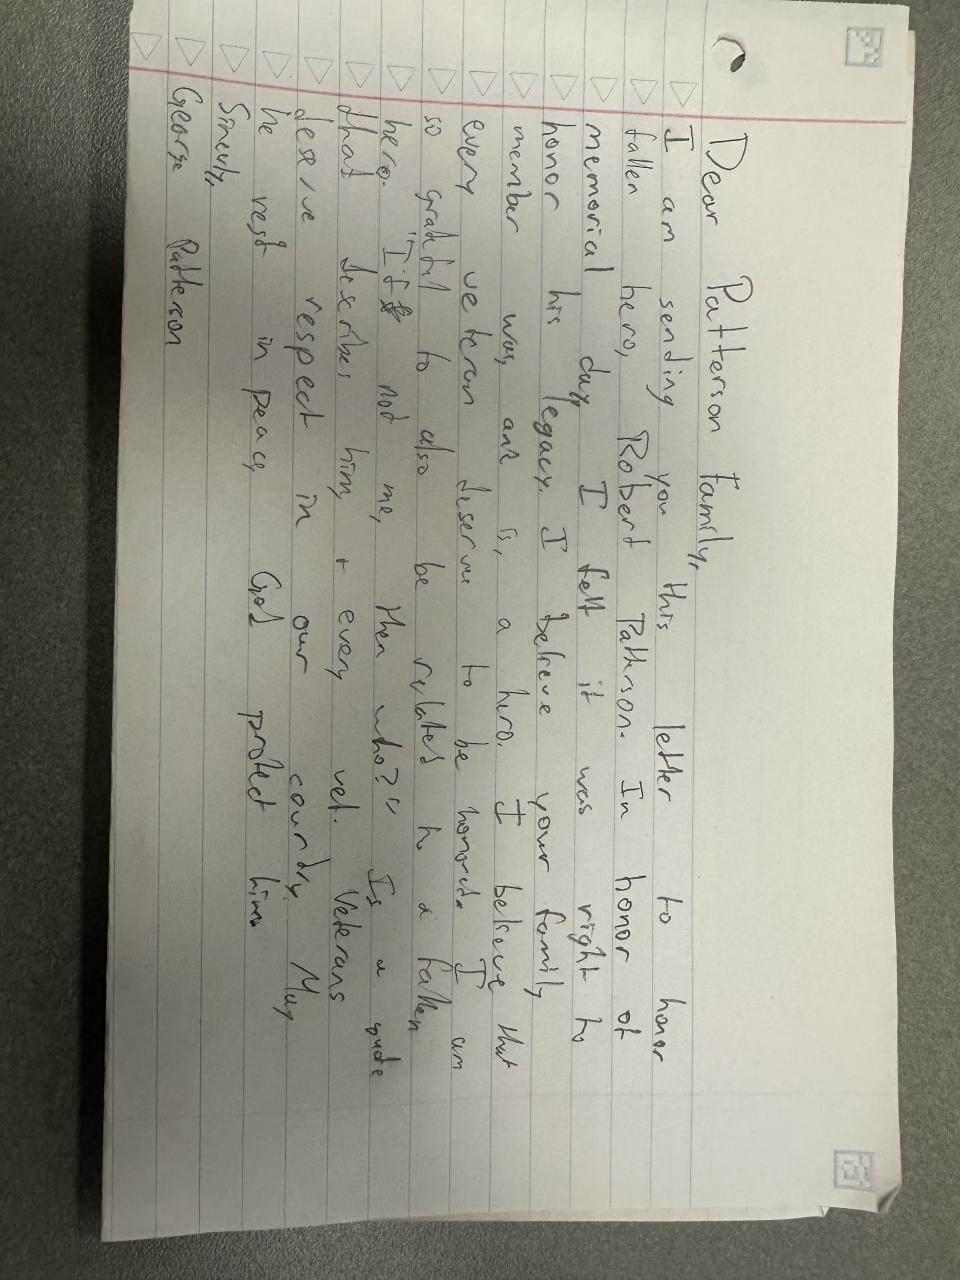 Dear Patterson family,
I am sending you this letter to honor
fallen hero, Robert Patterson. In honor of
memorial day, I felt it was right to
honor his legacy. I believe your family
member was, and is, a hero. I believe that
every veteran deserve to be honored. I am
so grateful to also be related to a fallen
hero. "If not me, then who?" Is a quote
that describes him, + every vet. Veterans
deserve respect in our country. May
he rest in peace, God protect him.
Sincerly,
George Patterson